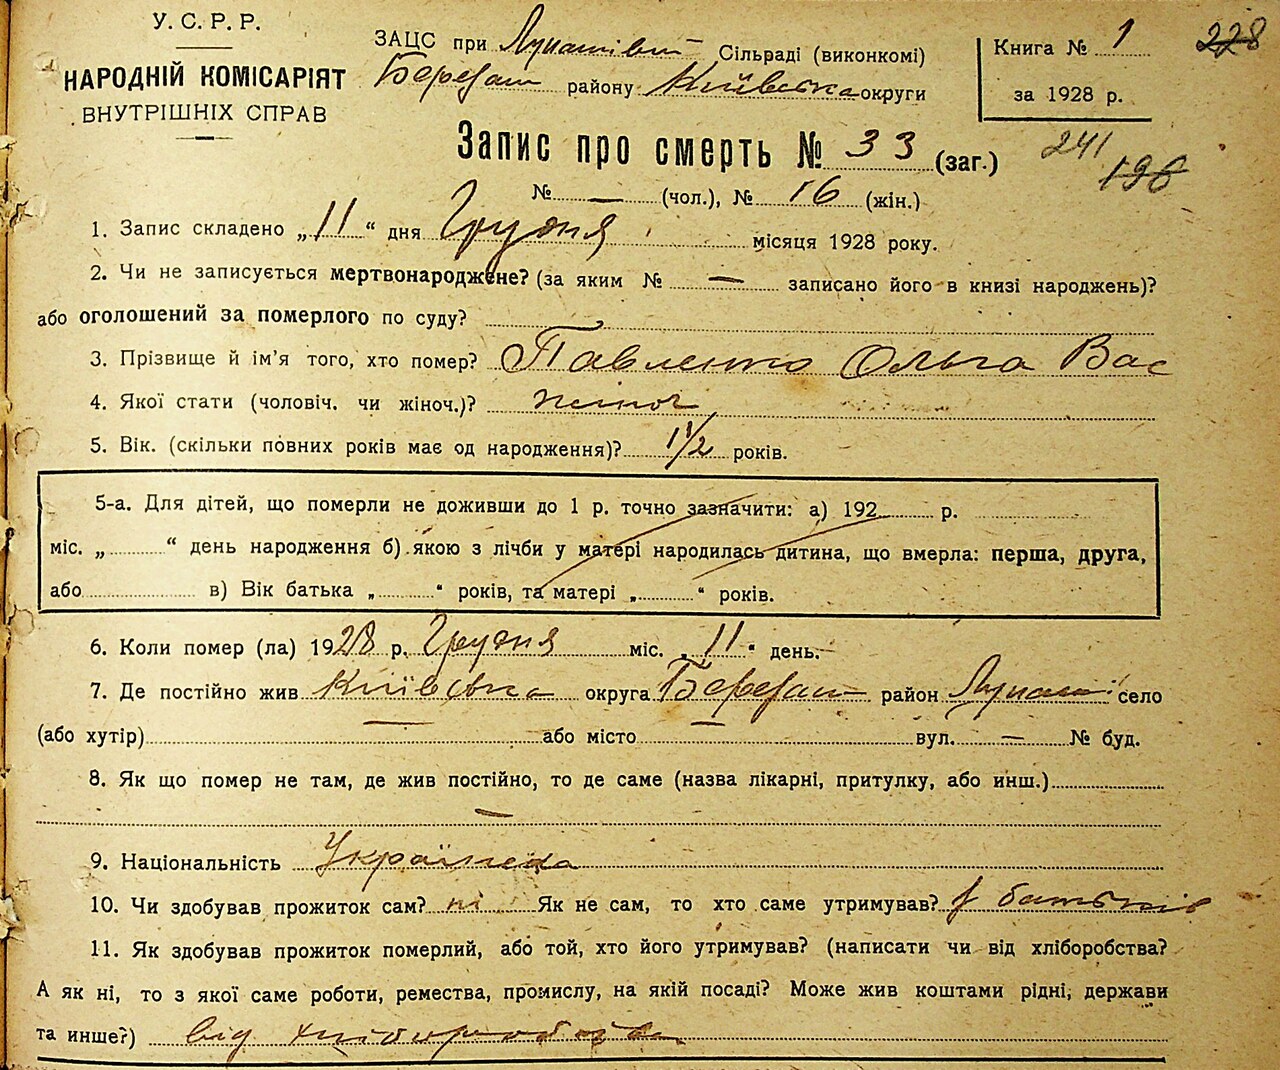 У. С. Р. Р.
НАРОДНІЙ КОМІСАРІЯТ
ВНУТРІШНІХ СПРАВ
ЗАЦС при Лукашівці Сільраді (виконкомі)
Березан району Київська округи
Книга № 1
за 1928 р.
228
Запис про смерть № 33 (заг.)
241
198
№ — (чол.), № 16 (жін.)
1. Запис складено „11“ дня Грудня місяця 1928 року.
2. Чи не записується мертвонароджене? (за яким № — записано його в книзі народжень)?
або оголошений за померлого по суду?
3. Прізвище й ім'я того, хто помер? Павленко Ольга Вас
4. Якої стати (чоловіч. чи жіноч.)? жіноч
5. Вік. (скільки повних років має од народження)? 1 1/2 років.
5-а. Для дітей, що померли не доживши до 1 р. точно зазначити: а) 192 р.
міс. „ “ день народження б) якою з лічби у матері народилась дитина, що вмерла: перша, друга,
або в) Вік батька „ “ років, та матері „ “ років.
6. Коли помер (ла) 1928 р. Грудня міс. „11“ день.
7. Де постійно жив Київська округа Березан район Лукаші село
(або хутір) — або місто — вул. — № буд.
8. Як що помер не там, де жив постійно, то де саме (назва лікарні, притулку, або инш.)
—
9. Національність Українка
10. Чи здобував прожиток сам? ні Як не сам, то хто саме утримував? у батьків
11. Як здобував прожиток померлий, або той, хто його утримував? (написати чи від хліборобства?
А як ні, то з якої саме роботи, ремества, промислу, на якій посаді? Може жив коштами рідні, держави
та инше?) від хліборобства